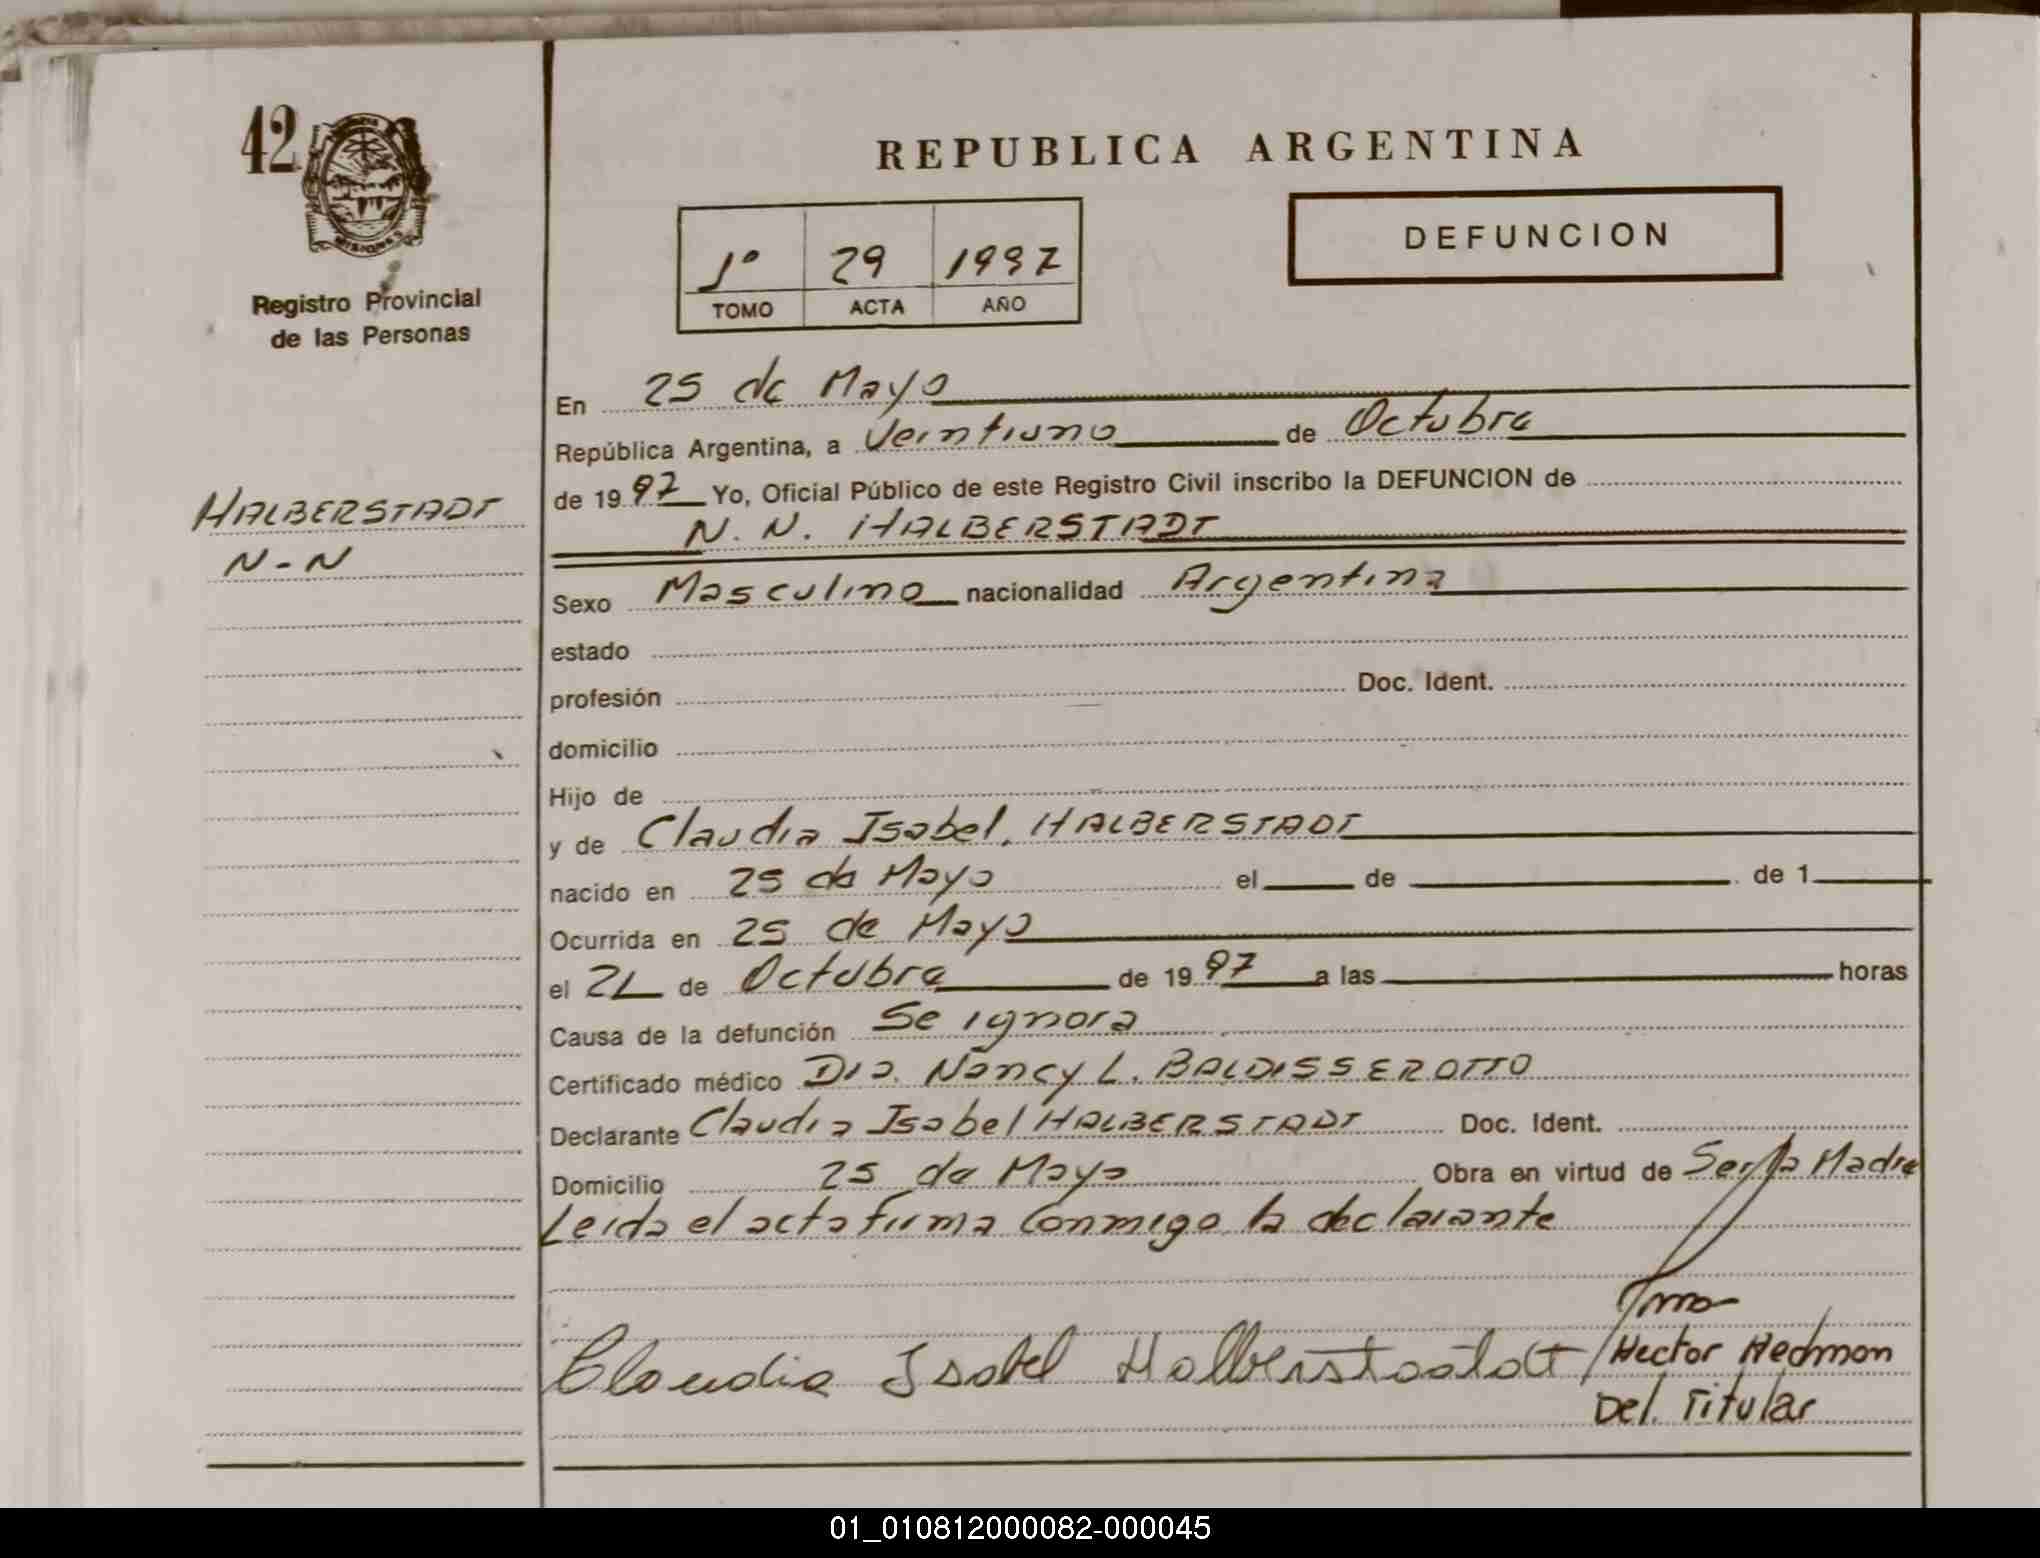 42
MISIONES
Registro Provincial
de las Personas
HALBERSTADT
N-N
REPUBLICA ARGENTINA
1º 29 1997
TOMO ACTA AÑO
DEFUNCION
En 25 de Mayo
República Argentina, a Veintiuno de Octubre
de 19 97 Yo, Oficial Público de este Registro Civil inscribo la DEFUNCION de
N. N. HALBERSTADT
Sexo Masculino nacionalidad Argentina
estado
profesión Doc. Ident.
domicilio
Hijo de
y de Claudia Isabel, HALBERSTADT
nacido en 25 de Mayo el de de 1
Ocurrida en 25 de Mayo
el 21 de Octubre de 19 97 a las horas
Causa de la defunción Se ignora
Certificado médico Dra. Nancy L. BALDISSEROTTO
Declarante Claudia Isabel HALBERSTADT Doc. Ident.
Domicilio 25 de Mayo Obra en virtud de Ser la Madre
Leida el acta firma conmigo la declarante
Claudia Isabel Halberstadt
Hector Hedman
Del. Titular
01_010812000082-000045